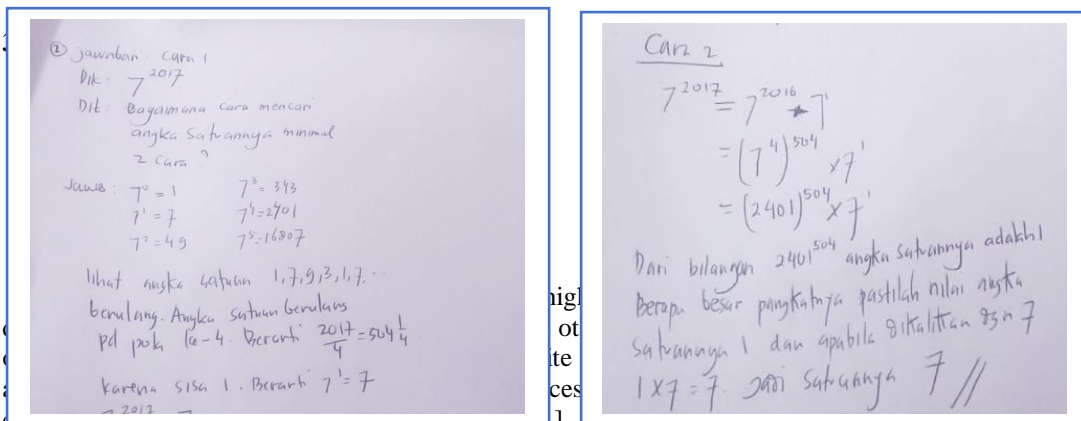 ② jawaban cara 1
Dik. 7^2017
Dit: Bagaimana cara mencari
angka Satuannya minimal
2 cara ?
Jawab : 7^0 = 1 7^3 = 343
7^1 = 7 7^4 = 2401
7^2 = 49 7^5 = 16807
lihat angka satuan 1,7,9,3,1,7...
berulang. Angka satuan berulang
pd pola ke-4. Berarti 2017/4 = 504 1/4
Karena sisa 1. Berarti 7^1 = 7
Cara 2
7^2017 = 7^2016 * 7^1
= (7^4)^504 x 7^1
= (2401)^504 x 7^1
Dari bilangan 2401^504 angka satuannya adalah 1
Berapa besar pangkatnya pastilah nilai angka
satuannya 1 dan apabila dikalikan dgn 7
1 x 7 = 7. Jadi satuannya 7 //